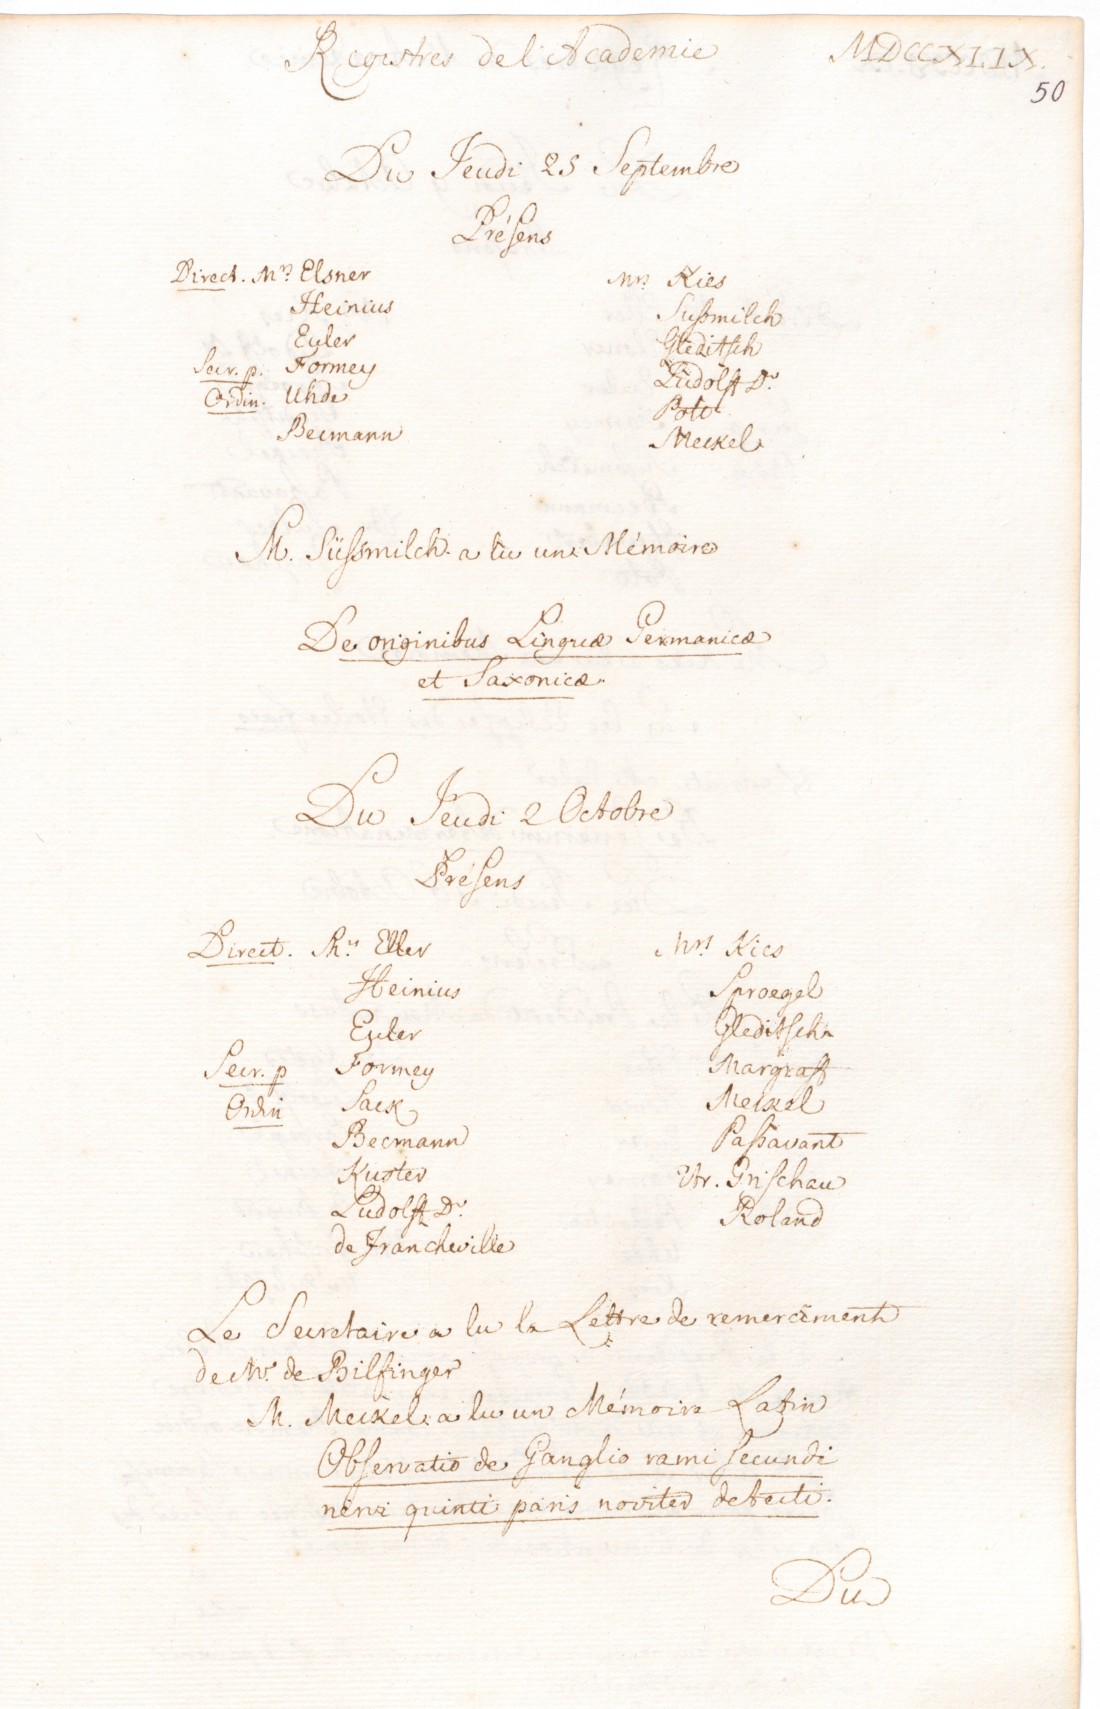 Registres de l'Academie MDCCXLIX.
50
Du Jeudi 25 Septembre
Présens
Direct. Mrs Elsner
Heinius
Euler
Secr. p. Formey
Ordin. Uhde
Becmann
Mrs Kies
Sußmilch
Gleditsch
Ludolff Dr
Pott
Meckel
M. Süssmilch a lu un Mémoire
De originibus Linguæ Germanicæ
et Saxonicæ.
Du Jeudi 2 Octobre
Présens
Direct. Mrs Eller
Heinius
Euler
Secr. p Formey
Ordin Sack
Becmann
Kuster
Ludolff Dr
de Francheville
Mrs Kies
Sproegel
Gleditsch
Margraff
Meckel
Paßavant
Vtr. Grischau
Roland
Le Secretaire a lu la Lettre de remerciment
de Mr. de Bilfinger
M. Meckel a lu un Mémoire Latin
Observatio de Ganglio rami secundi
nervi quinti paris noviter detecti.
Du